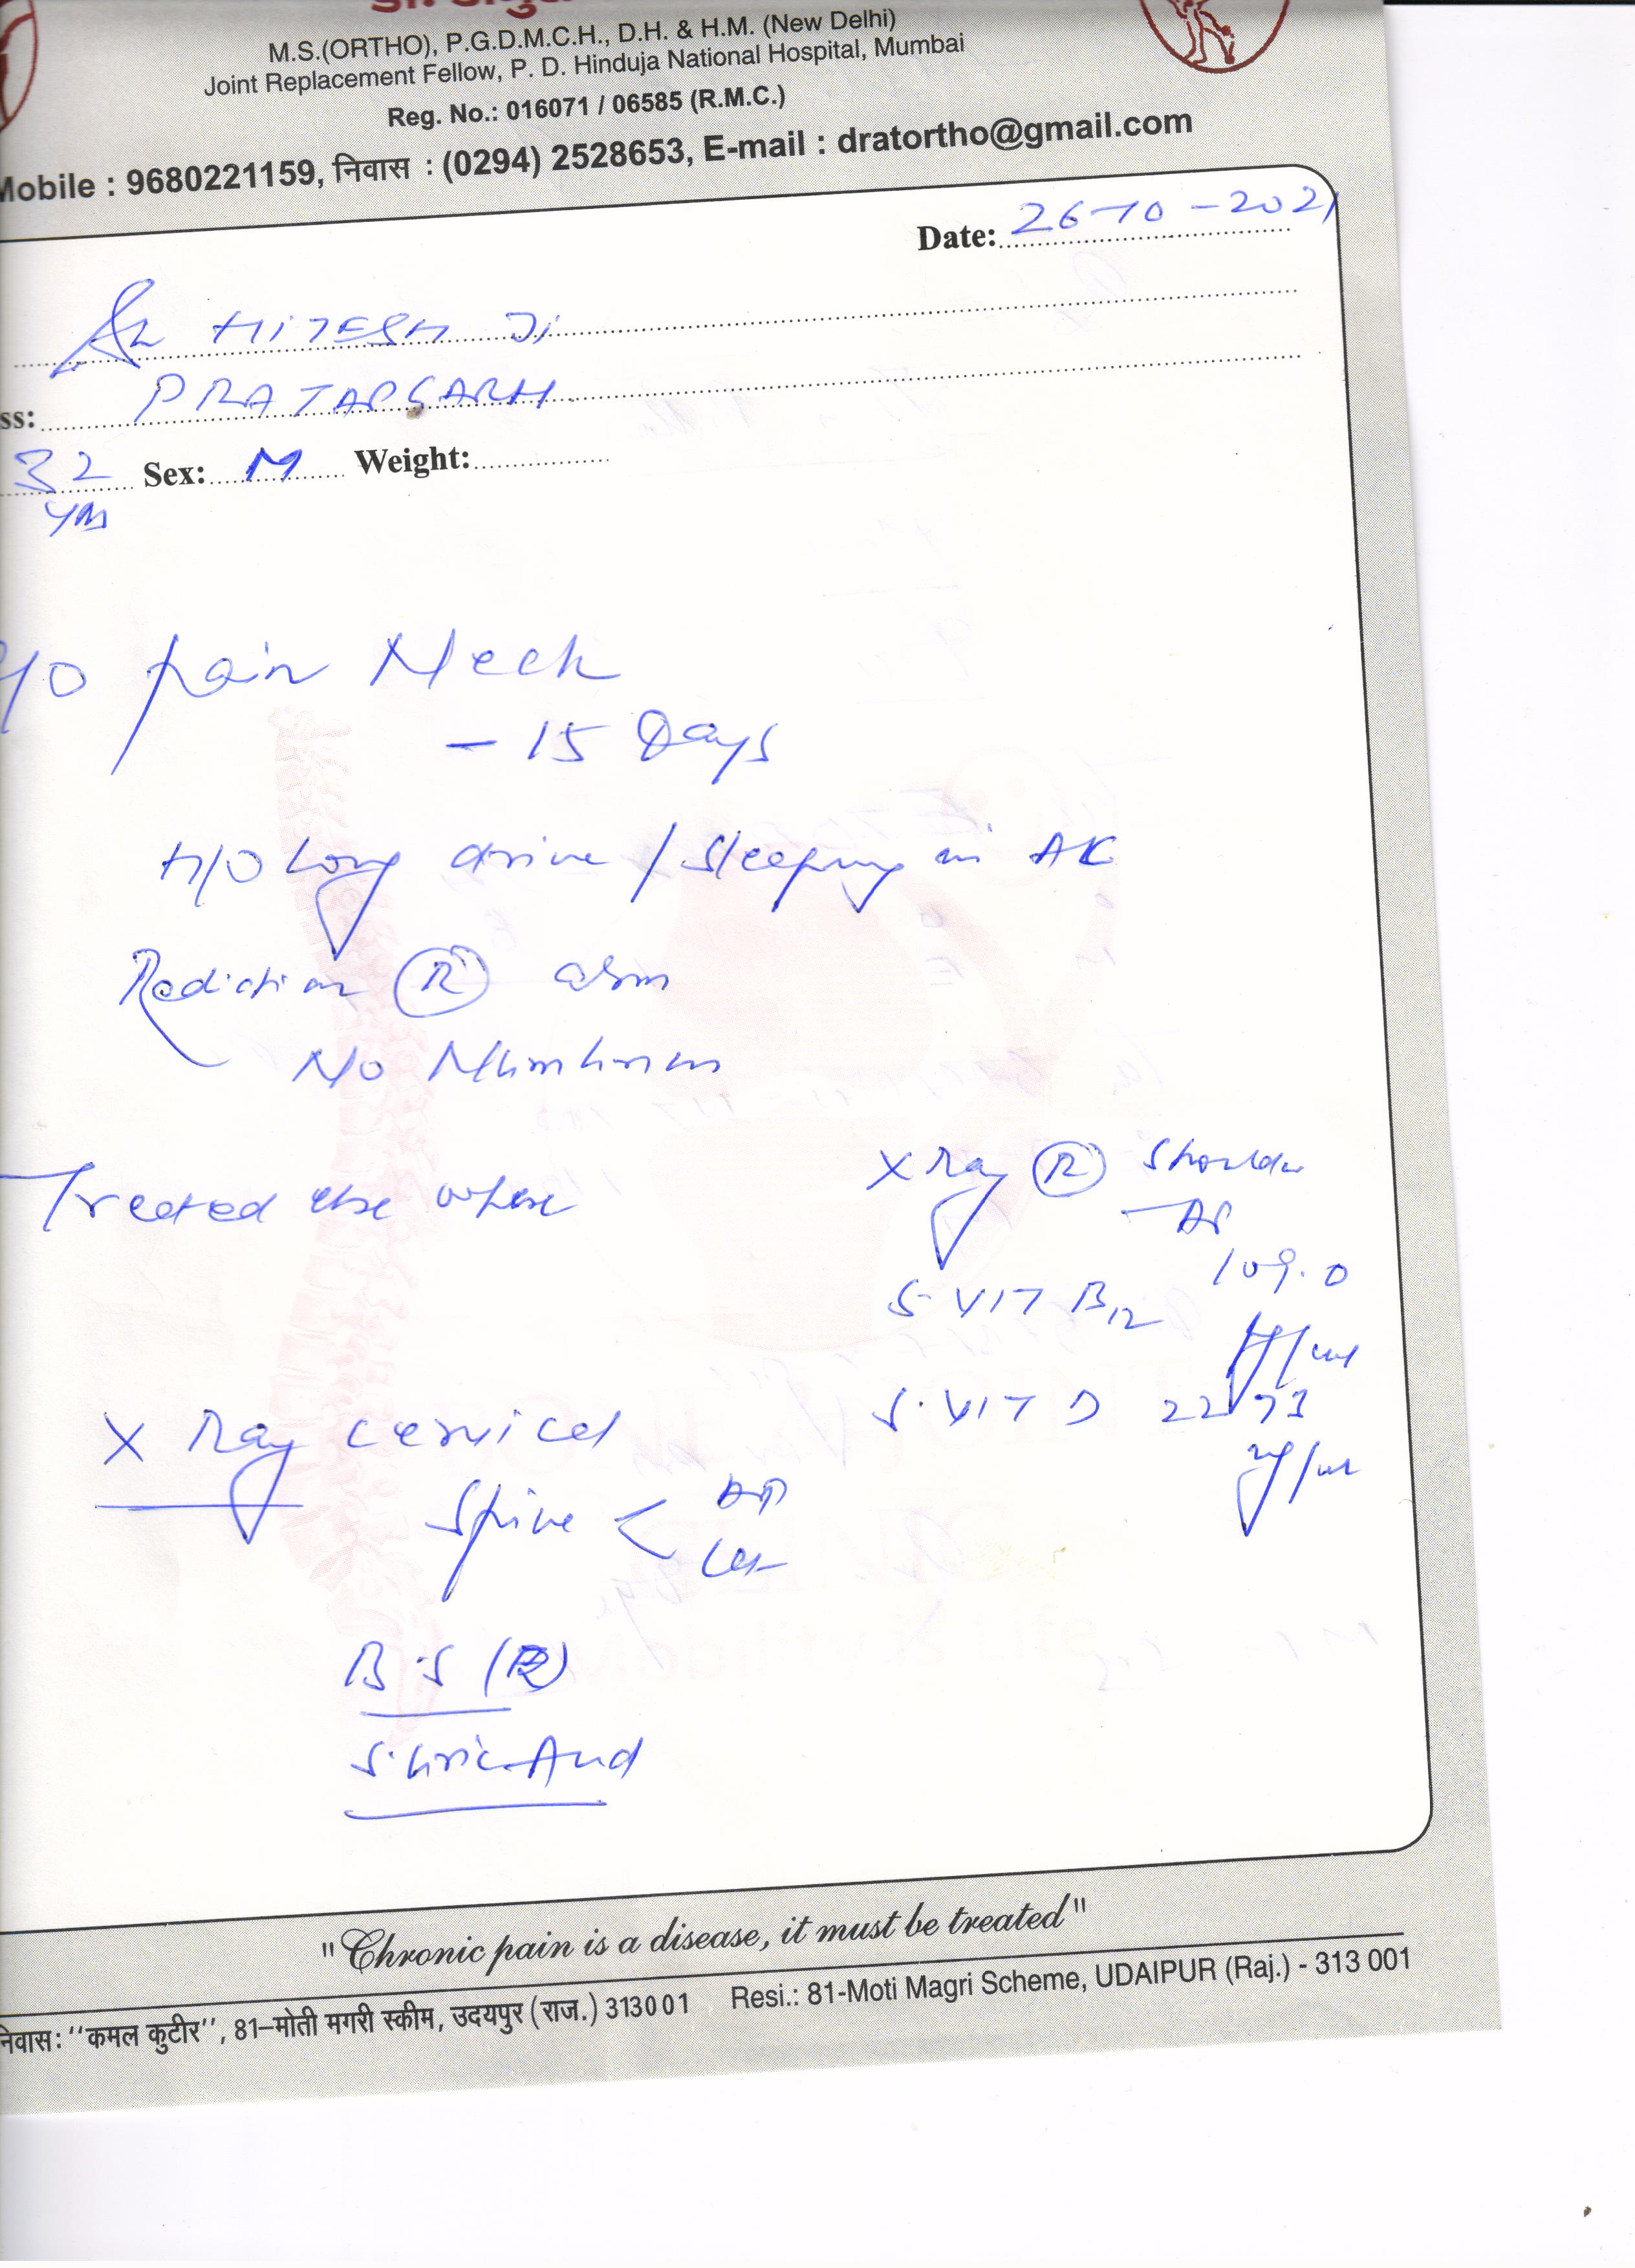 M.S.(ORTHO), P.G.D.M.C.H., D.H. & H.M. (New Delhi)
Joint Replacement Fellow, P. D. Hinduja National Hospital, Mumbai
Reg. No.: 016071 / 06585 (R.M.C.)
Mobile : 9680221159, निवास : (0294) 2528653, E-mail : dratortho@gmail.com
Date: 26-10-2021
HITESH Ji
ss: PRATAPGARH
32 Sex: M Weight:
Yrs
/O Pain Neck
- 15 Days
H/O Long drive / Sleeping in AC
Radiation (R) arm
No Numbness
Treated else where
X Ray (R) Shoulder
- AP
109.0
S. VIT B12
/ml
S. VIT D 22.93
ng/ml
X Ray cervical
Spine < AP
Lat
B.S (R)
S. Uric Acid
"Chronic pain is a disease, it must be treated"
निवास: ‘‘कमल कुटीर’’, 81–मोती मगरी स्कीम, उदयपुर (राज.) 313001 Resi.: 81-Moti Magri Scheme, UDAIPUR (Raj.) - 313 001